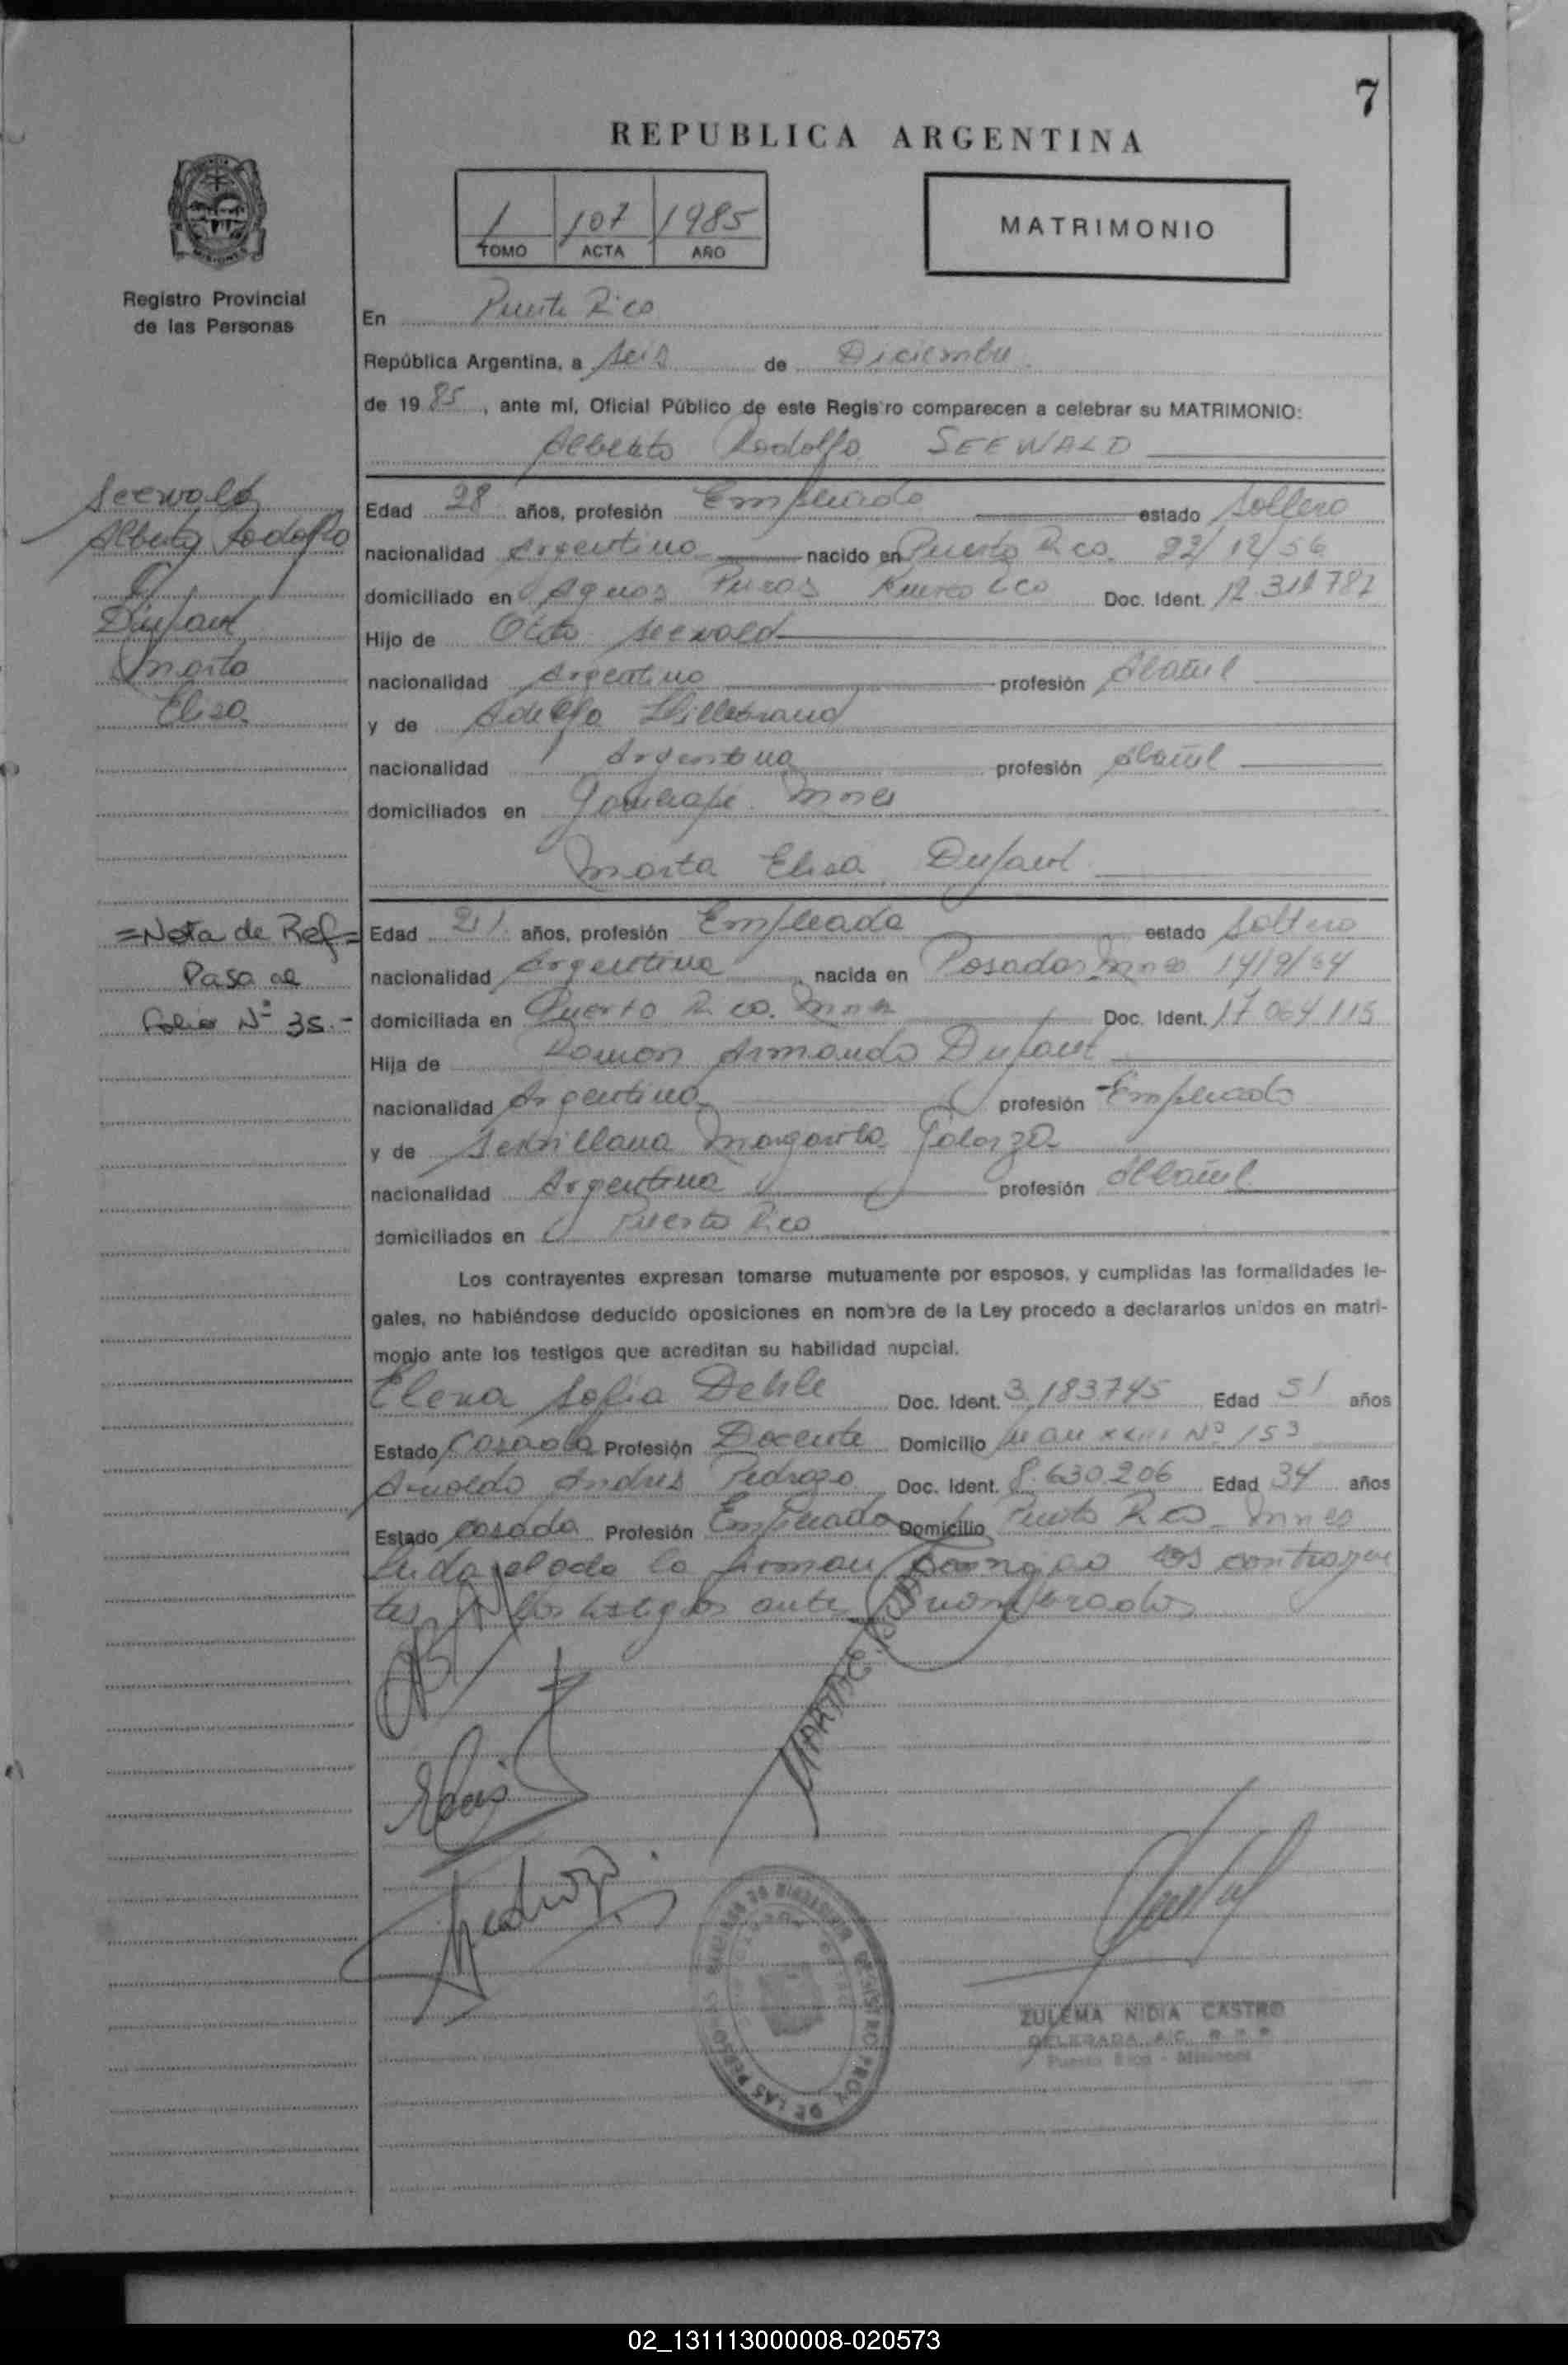 7
REPUBLICA ARGENTINA
1 107 1985
TOMO ACTA AÑO
MATRIMONIO
Registro Provincial
de las Personas
En Puerto Rico
República Argentina, a seis de Diciembre
de 1985, ante mí, Oficial Público de este Registro comparecen a celebrar su MATRIMONIO:
Alberto Rodolfo SEEWALD
Seewald
Alberto Rodolfo
Marta
Elisa
Edad 28 años, profesión Empleado estado Soltero
nacionalidad Argentino nacido en Puerto Rico 22/12/56
domiciliado en Aguas Puras Puerto Rico Doc. Ident.
Hijo de Otto Seewald
nacionalidad Argentino profesión
y de Hillebrand
nacionalidad Argentina profesión
domiciliados en Mnes
Marta Elisa
=Nota de Ref=
Pasa al
folio Nº 35.-
Edad 21 años, profesión Empleada estado Soltera
nacionalidad Argentina nacida en Posadas Mnes 14/9/64
domiciliada en Puerto Rico. Mnes Doc. Ident. 17.064.115
Hija de Ramon Armando
nacionalidad Argentino profesión Empleado
y de Margarita
nacionalidad Argentina profesión
domiciliados en Puerto Rico
Los contrayentes expresan tomarse mutuamente por esposos, y cumplidas las formalidades le-
gales, no habiéndose deducido oposiciones en nombre de la Ley procedo a declararlos unidos en matri-
monio ante los testigos que acreditan su habilidad nupcial.
Elena Sofia Dehle Doc. Ident. 3.183745 Edad 51 años
Estado Casada Profesión Docente Domicilio Juan XXIII Nº 153
Arnoldo Andres Pedrozo Doc. Ident. 8.630.206 Edad 34 años
Estado casado Profesión Empleado Domicilio Puerto Rico - Mnes
Leida el acta la firman conmigo los contrayen
tes y los testigos antes nombrados
ZULEMA NIDIA CASTRO
DELEGADA
Puerto Rico - Misiones
02_131113000008-020573